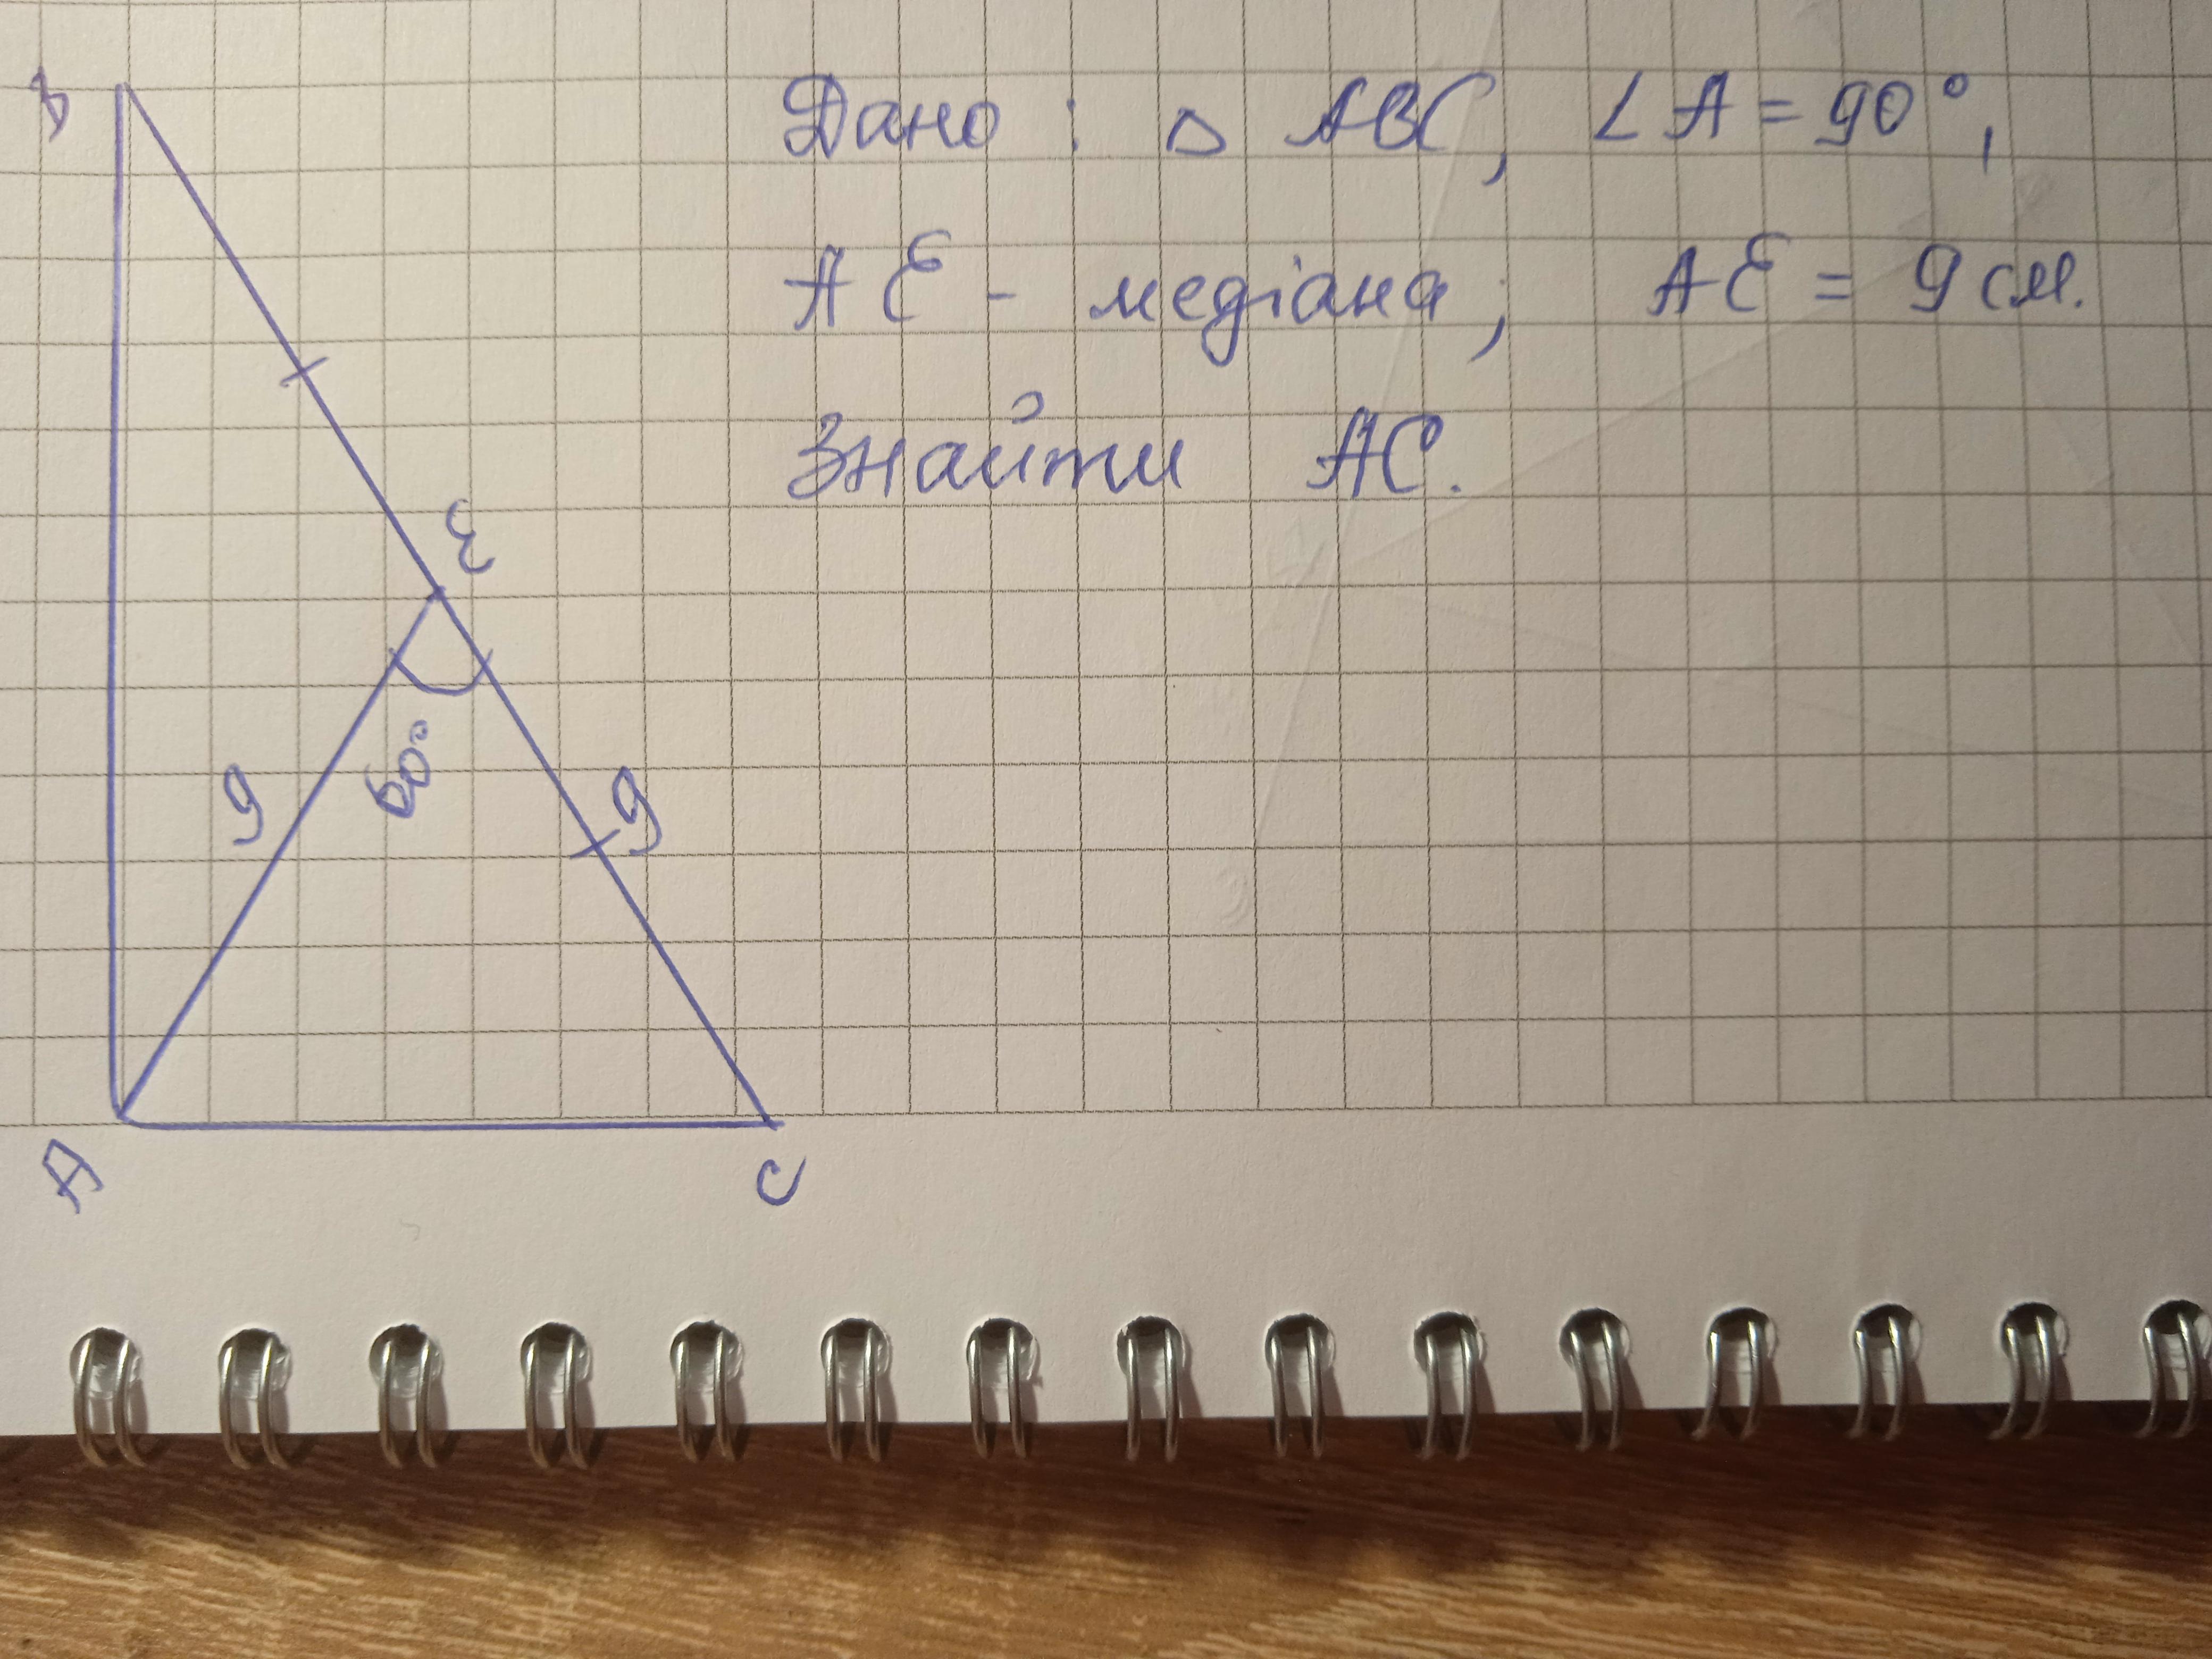 Дано : △ ABC, ∠A = 90°,
AE - медіана; AE = 9 см.
Знайти AC.
B
E
60°
9
9
A
C